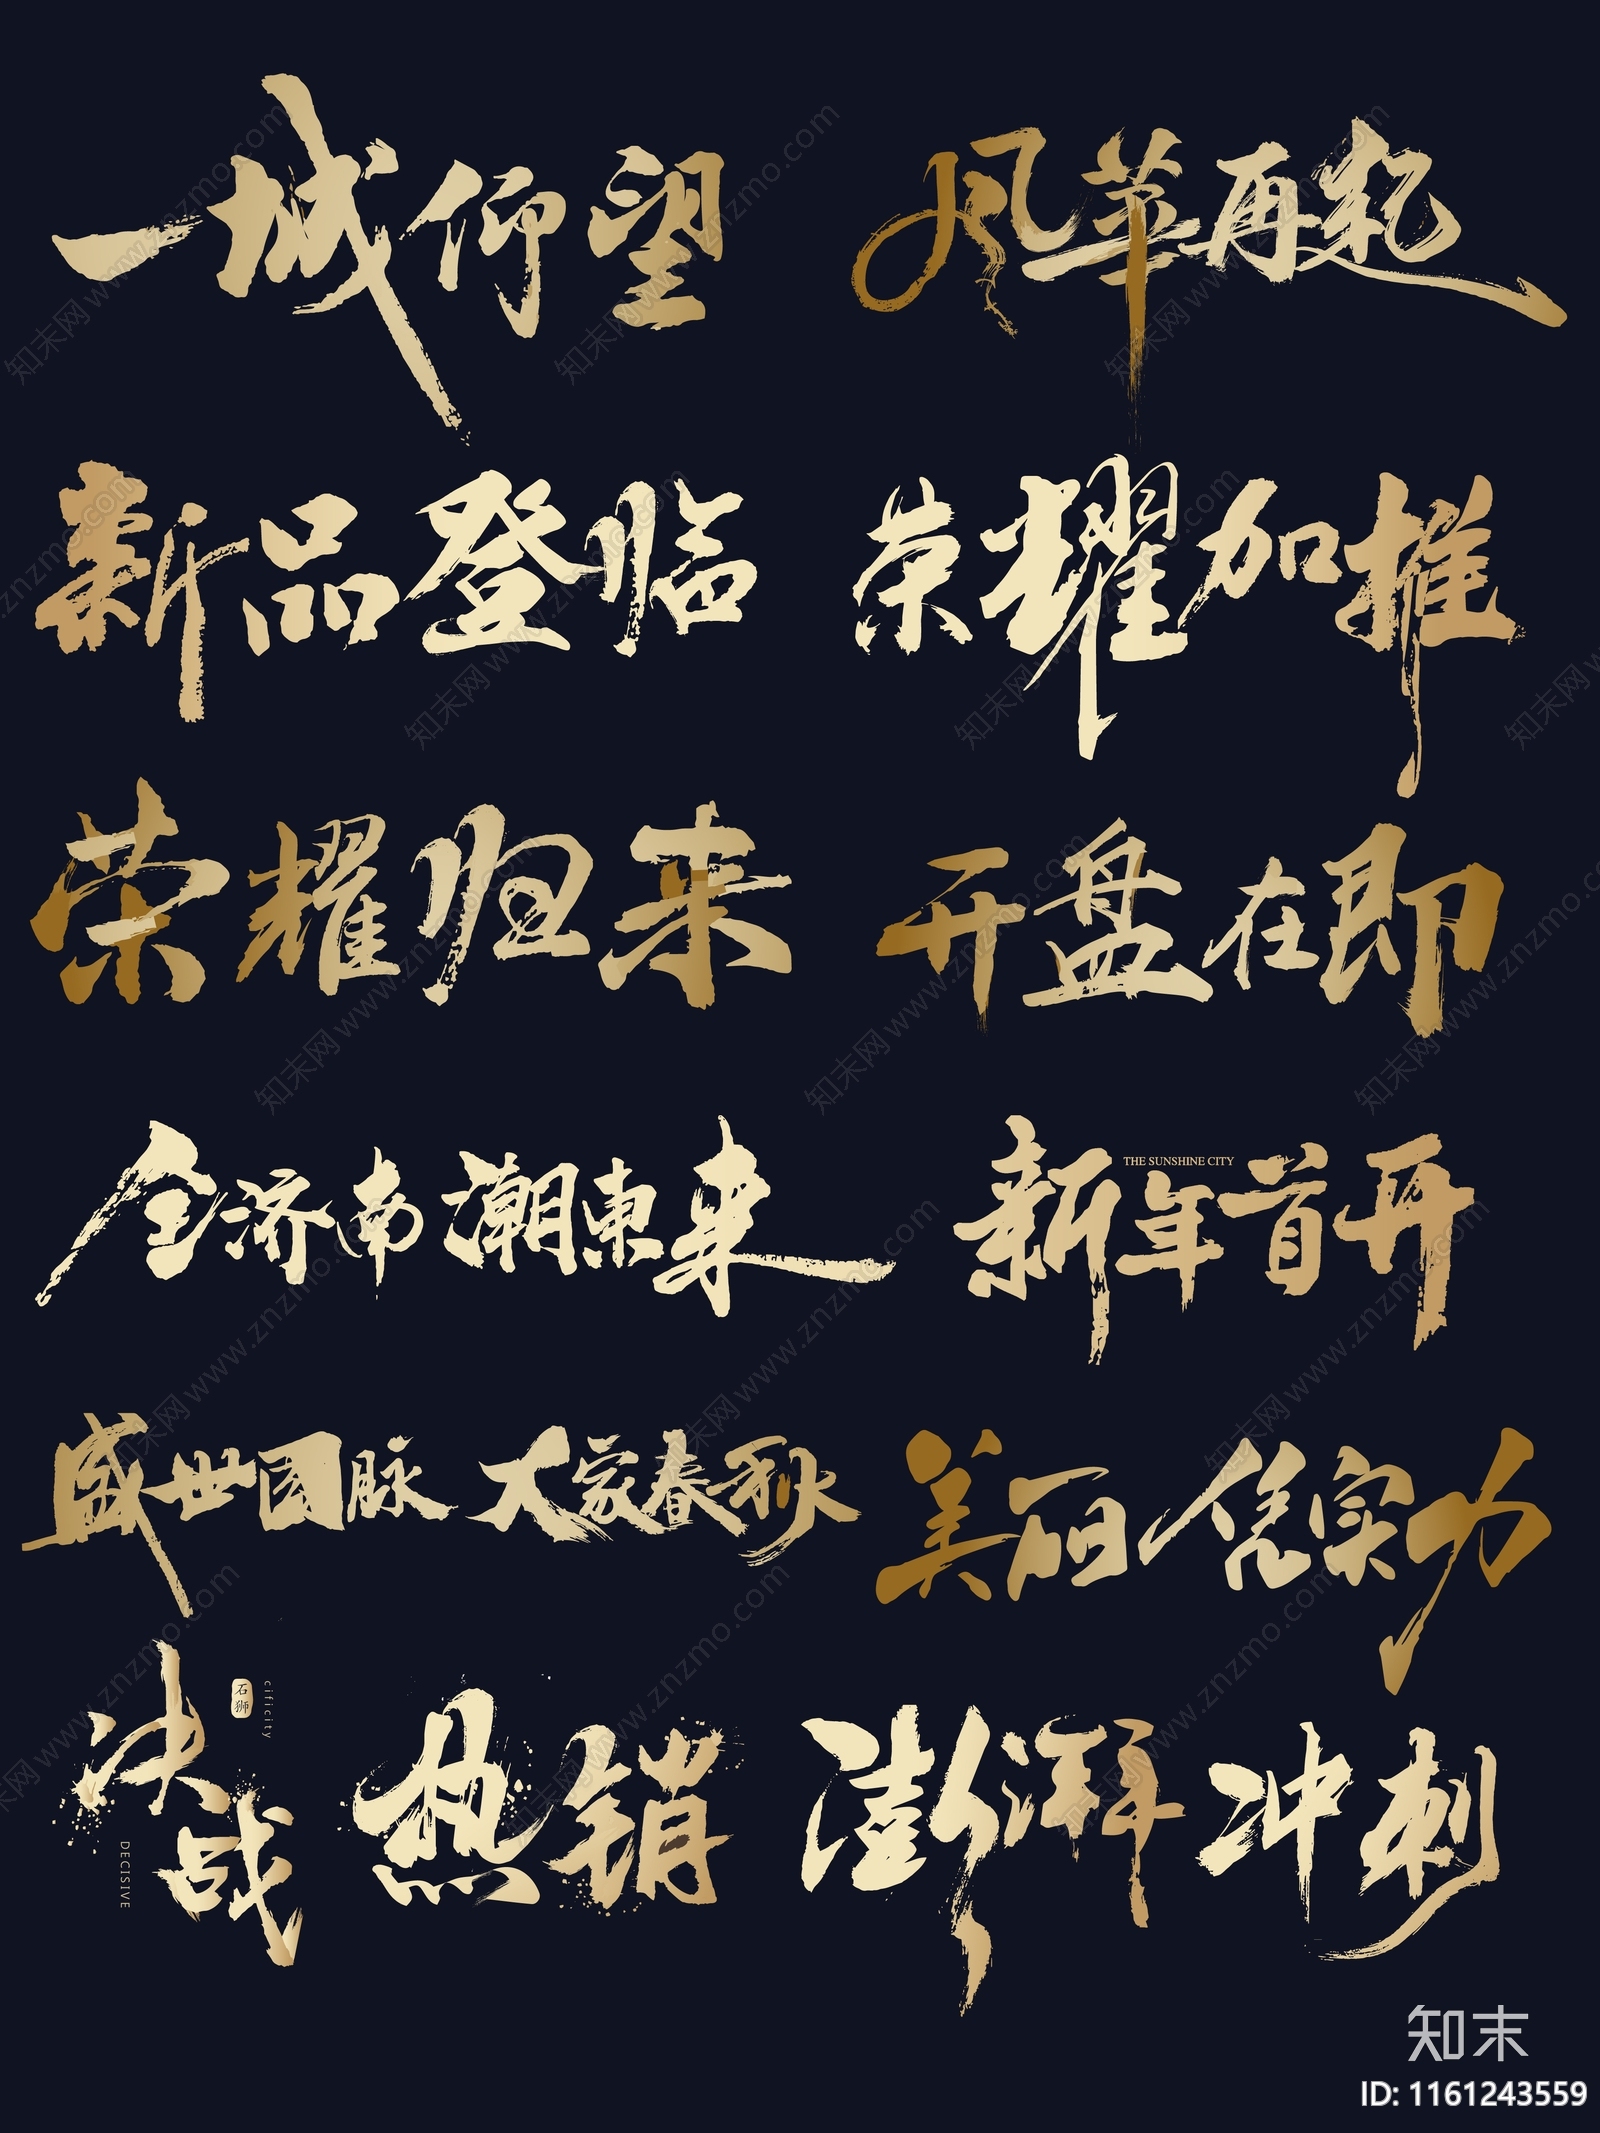 一城仰望
风华再起
新品登临
荣耀加推
荣耀归来
开盘在即
全济南 潮东来
新年首开
THE SUNSHINE CITY
盛世国脉 大家春秋
美丽凭实力
决战
石狮
cificity
DECISIVE
热销
澎湃
冲刺
知末网www.znzmo.com
知末
ID: 1161243559